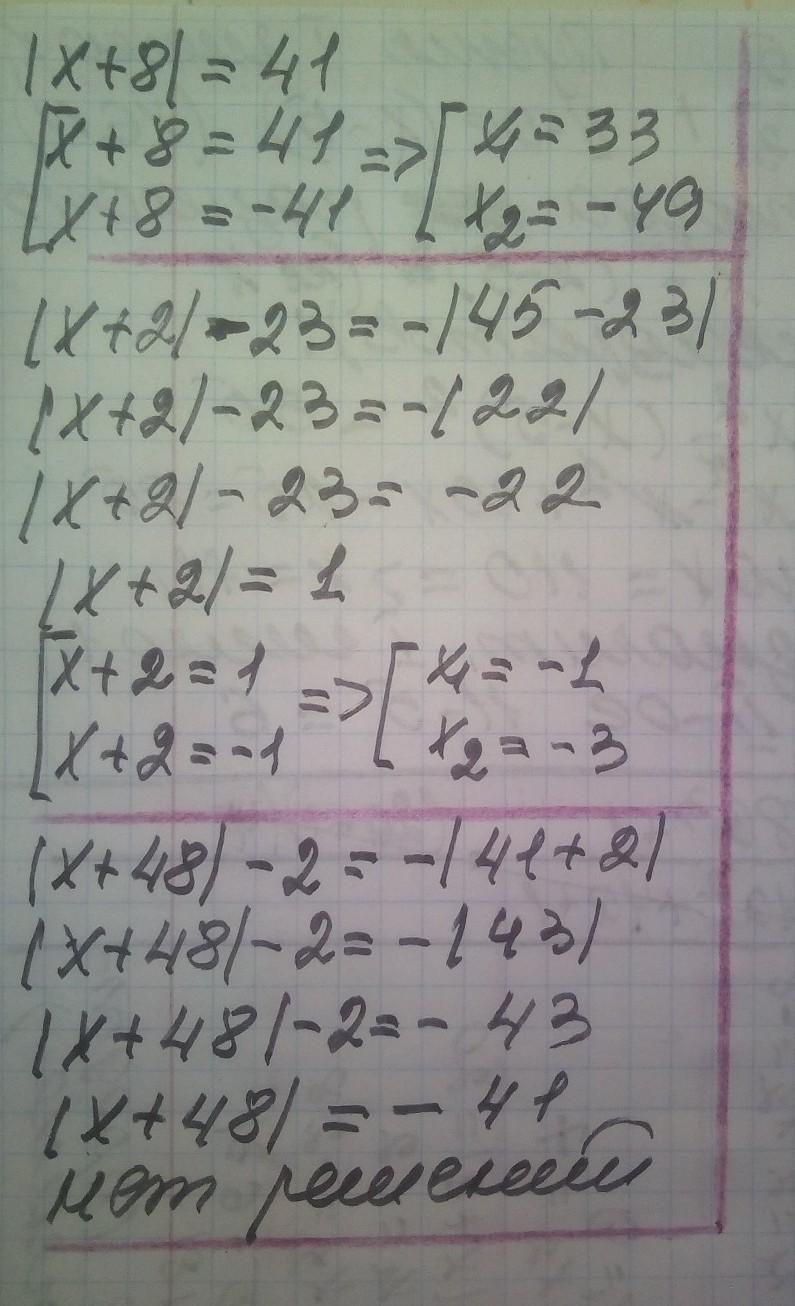 |x+8| = 41
[x+8 = 41 => [x₁ = 33
x+8 = -41 x₂ = -49
|x+2| - 23 = -|45 - 23|
|x+2| - 23 = -|22|
|x+2| - 23 = -22
|x+2| = 1
[x+2 = 1 => [x₁ = -1
x+2 = -1 x₂ = -3
|x+48| - 2 = -|41+2|
|x+48| - 2 = -|43|
|x+48| - 2 = - 43
|x+48| = - 41
нет решений